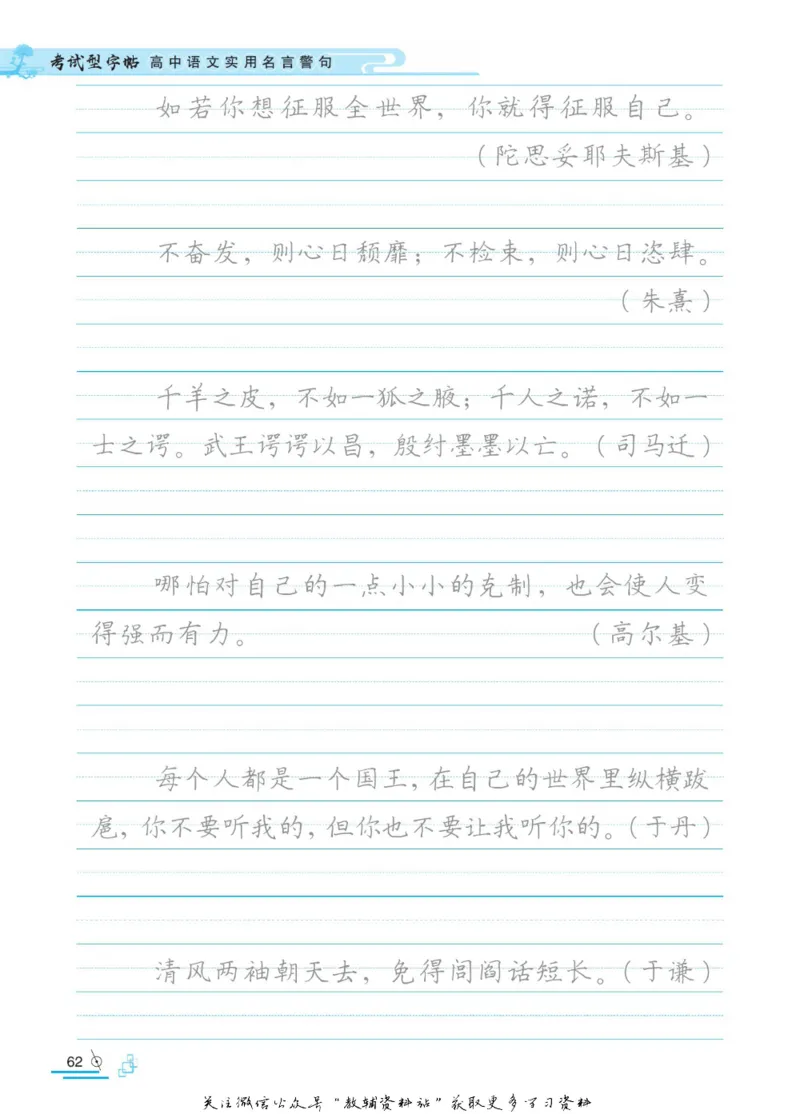 考试型字帖 高中语文实用名言警句
如若你想征服全世界，你就得征服自己。
（陀思妥耶夫斯基）
不奋发，则心日颓靡；不检束，则心日恣肆。
（朱熹）
千羊之皮，不如一狐之腋；千人之诺，不如一
士之谔。武王谔谔以昌，殷纣墨墨以亡。（司马迁）
哪怕对自己的一点小小的克制，也会使人变
得强而有力。（高尔基）
每个人都是一个国王，在自己的世界里纵横跋
扈，你不要听我的，但你也不要让我听你的。（于丹）
清风两袖朝天去，免得闾阎话短长。（于谦）
62
关注微信公众号“教辅资料站”获取更多学习资料